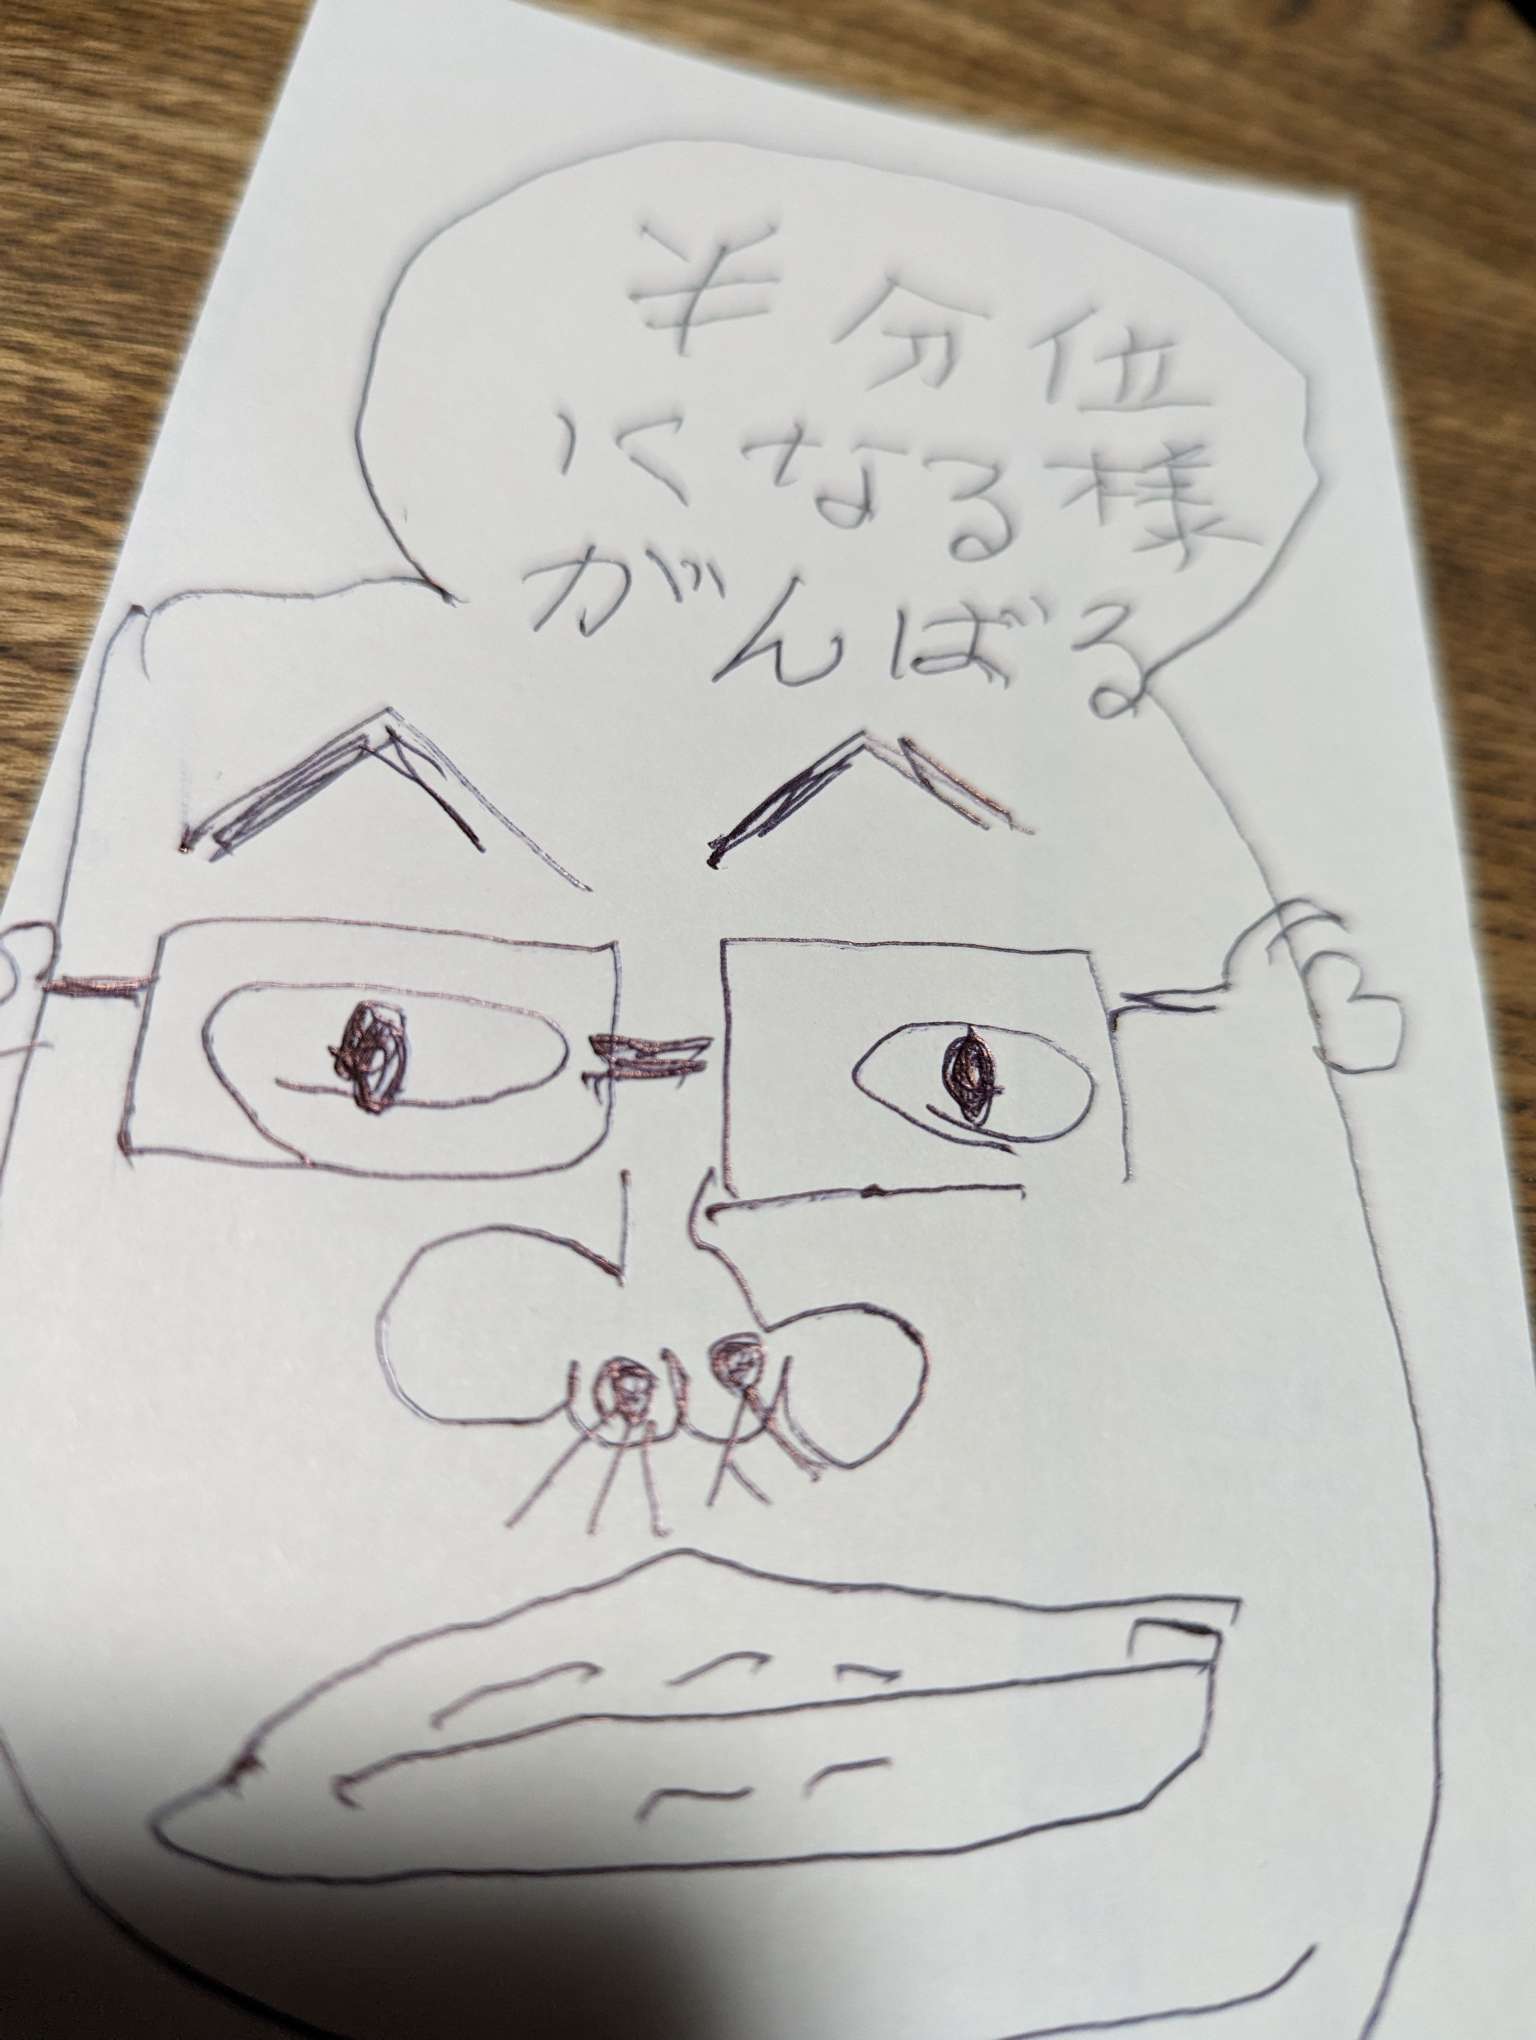 半分位
いくなる様
がんばる